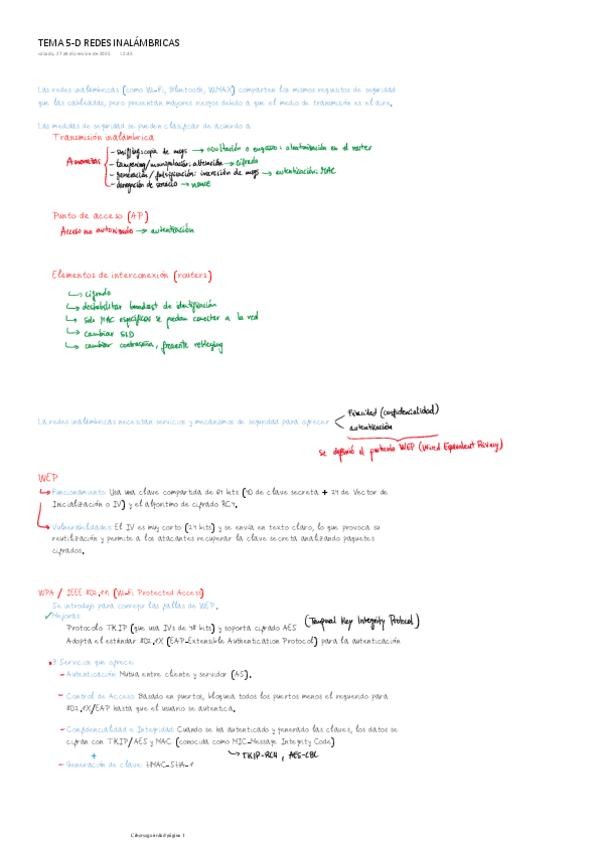 TEMA 5-D REDES INALÁMBRICAS
sábado, 27 de diciembre de 2025
Las redes inalámbricas (como Wi-Fi, Bluetooth, WiMAX) comparten los mismos requisitos de seguridad
que las cableadas, pero presentan mayores riesgos debido a que el medio de transmisión es el aire.
Las medidas de seguridad se pueden clasificar de acuerdo a
Transmisión inalámbrica
Amenazas
- sniffing: copia de msgs → ocultación o engaño: aleatorización en el router
- tampering/manipulación: alteración → cifrado
- generación/falsificación: inserción de msgs → autenticación: MAC
- denegación de servicio → nonce
Punto de acceso (AP)
Acceso no autorizado → autenticación
Elementos de interconexión (routers)
↳ cifrado
↳ deshabilitar broadcast de identificación
↳ solo MAC específicos se puedan conectar a la red
↳ cambiar SID
↳ cambiar contraseña, frecuente rekeying
La redes inalámbricas necesitan servicios y mecanismos de seguridad para ofrecer
Privacidad (confidencialidad)
autenticación
se definió el protocolo WEP (Wired Equivalent Privacy)
WEP
Funcionamiento: Usa una clave compartida de 64 bits (40 de clave secreta + 24 de Vector de
Inicialización o IV) y el algoritmo de cifrado RC4.
Vulnerabilidades: El IV es muy corto (24 bits) y se envía en texto claro, lo que provoca su
reutilización y permite a los atacantes recuperar la clave secreta analizando paquetes
cifrados.
WPA / IEEE 802.11 (Wi-Fi Protected Access)
Se introdujo para corregir las fallas de WEP.
✓ Mejoras:
Protocolo TKIP (que usa IVs de 48 bits) y soporta cifrado AES (Temporal Key Integrity Protocol)
Adopta el estándar 802.1X (EAP-Extensible Authentication Protocol) para la autenticación
3 Servicios que ofrece:
- Autenticación: Mutua entre cliente y servidor (AS).
- Control de Acceso: Basado en puertos, bloquea todos los puertos menos el requerido para
802.1X/EAP hasta que el usuario se autentica.
- Confidencialidad e Integridad: Cuando se ha autenticado y generado las claves, los datos se
cifrán con TKIP/AES y MAC (conocida como MIC-Message Integrity Code)
+ ↳ TKIP-RC4, AES-CBC
- Generación de clave: HMAC-SHA-1
Ciberseguridad página 1